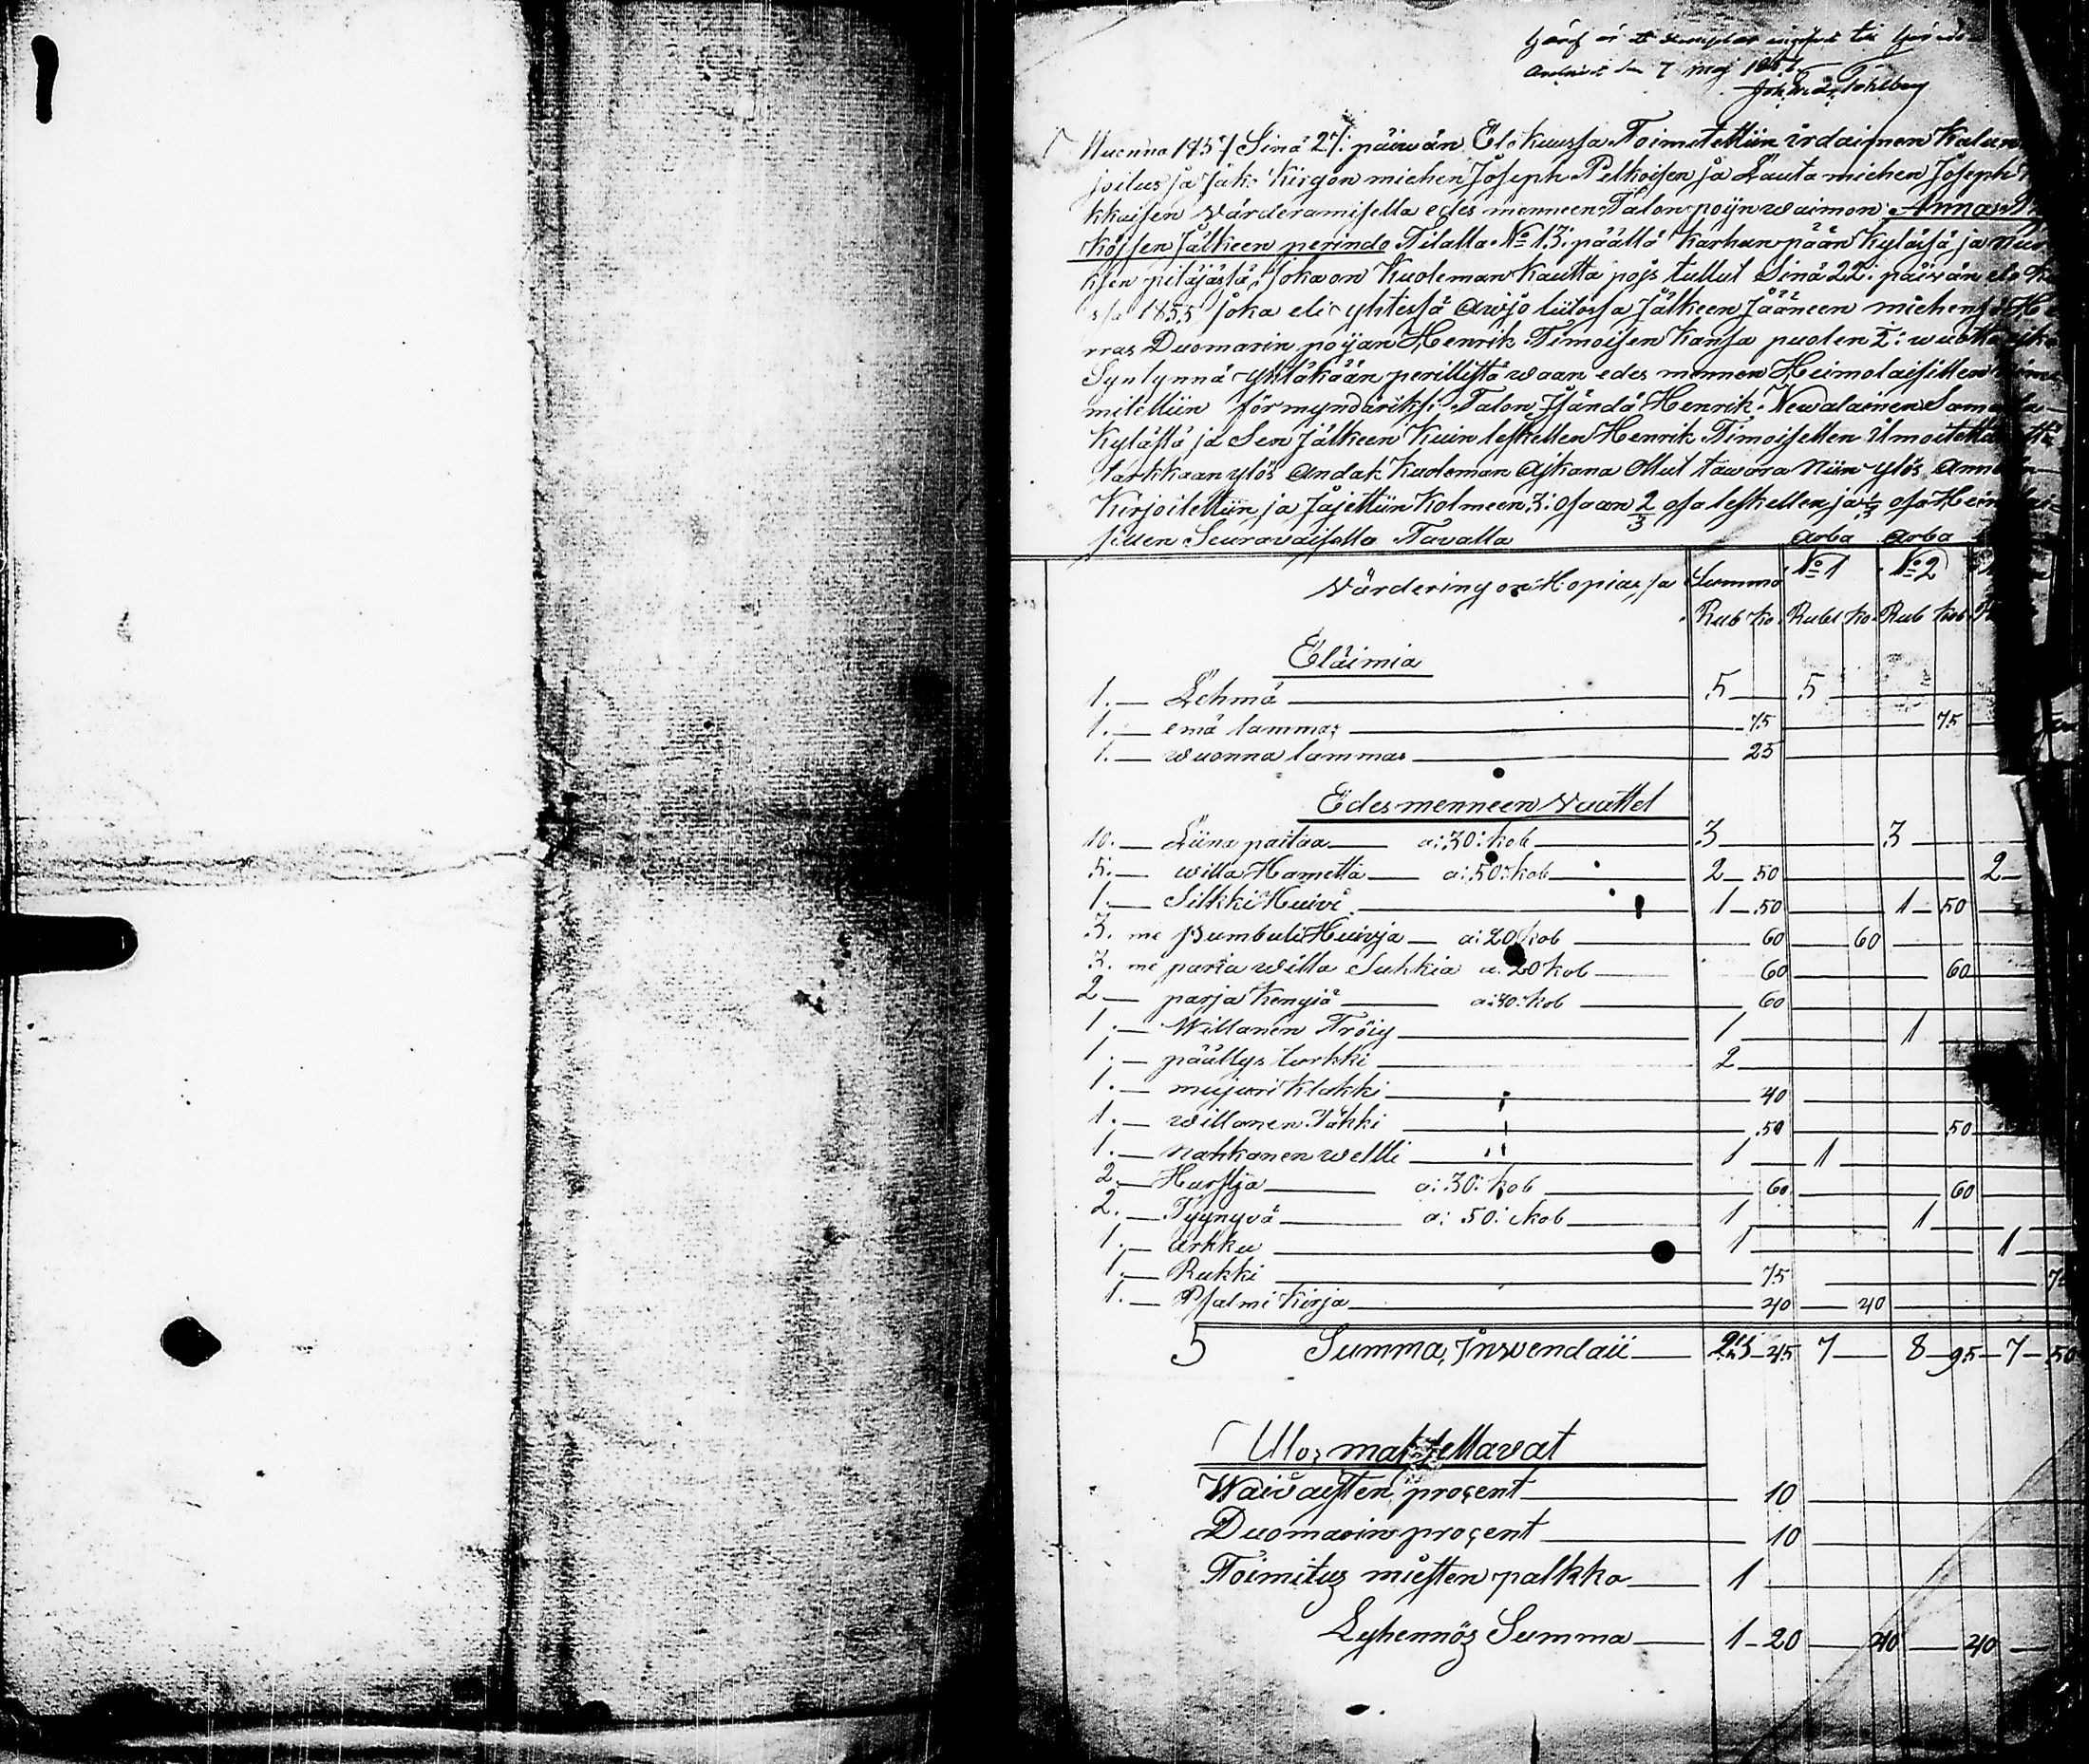 den 7 maj 185
Muenna 1857 Sinä 27: päiwän Elokuussa Toimitettiin irdaimen Kalun
joilus ja Jako Kirgon miehen Joseph Pelkoisen ja Lauta miehen Joseph
kkaisen Värderamisella edes menneen Talon poijn waimon Anna
köisen Jälkeen perindo Tilalla No 13: päällä Karhun pään Kylässä ja
ksen pitäjästä, Joka on Kuoleman Kautta pojs tullut Sinä 22: päiwän elo
ssa 1855 Joka eli yhtessä Awjo liitossa Jälkeen Jääneen miehensä He
rras Duomarin poijan Henrik Timoisen Kansa puolen ½: wuotta
Syntynnä yhtäkään perillistä waan edes mennen Heimolaisillen
mitettiin förmyndäriksi Talon Isändä Henrik Newalainen
Kylästä ja Sen Jälkeen Kuin leskellen Henrik Timoisellen ilmoitettiin
tarkkaan ylös Andak Kuoleman Ajkana Ollut tawara Niin ylös
Kirjoitettiin ja Jajettiin Kolmeen 3: Osaan 2/3 osa leskellen ja 1/3 osa
sillen Seurawaisella Tavalla Arba Arba
Värdering on Hopias, ja Summa No 1 No 2
Rub Ko Rubl Ko Rub Kob
Eläimia
1. — Lehmä 5 5
1. — emä lammas 75 75
1. — wuonna lammas 25
Edesmenneen Vaattet
10. — Liina paitaa a: 30: kob 3 3
5. — willa Hametta a: 50: kob 2 50 2
1. — Silkki Huivi 1 50 1 50
3. me pumbuli Huivja a: 20 kob 60 60
3. me paria willa Sukkia a: 20 kob 60 60
2 — parja Kengiä a: 30: kob 60
1. — Willanen Tröiy 1 1
1. — päällys turkki 2
1. — mujuri Klakki 40
1. — willanen Täkki 50 50
1. — Nahkanen weltti 1 1
2. — Hurstja a: 30: kob 60 60
2. — Tyynyvä a: 50: kob 1 1
1. — Arkku 1 1
1. — Rukki 75
1. — Psalmi Kirja 40 40
5 Summa, Inwendaii 23 45 7 8 95 7 50
Ulos maksettavat
Waivaisten proçent 10
Duomarin proçent 10
Toimitus miesten palkka 1
Lyhennös Summa 1 20 40 40